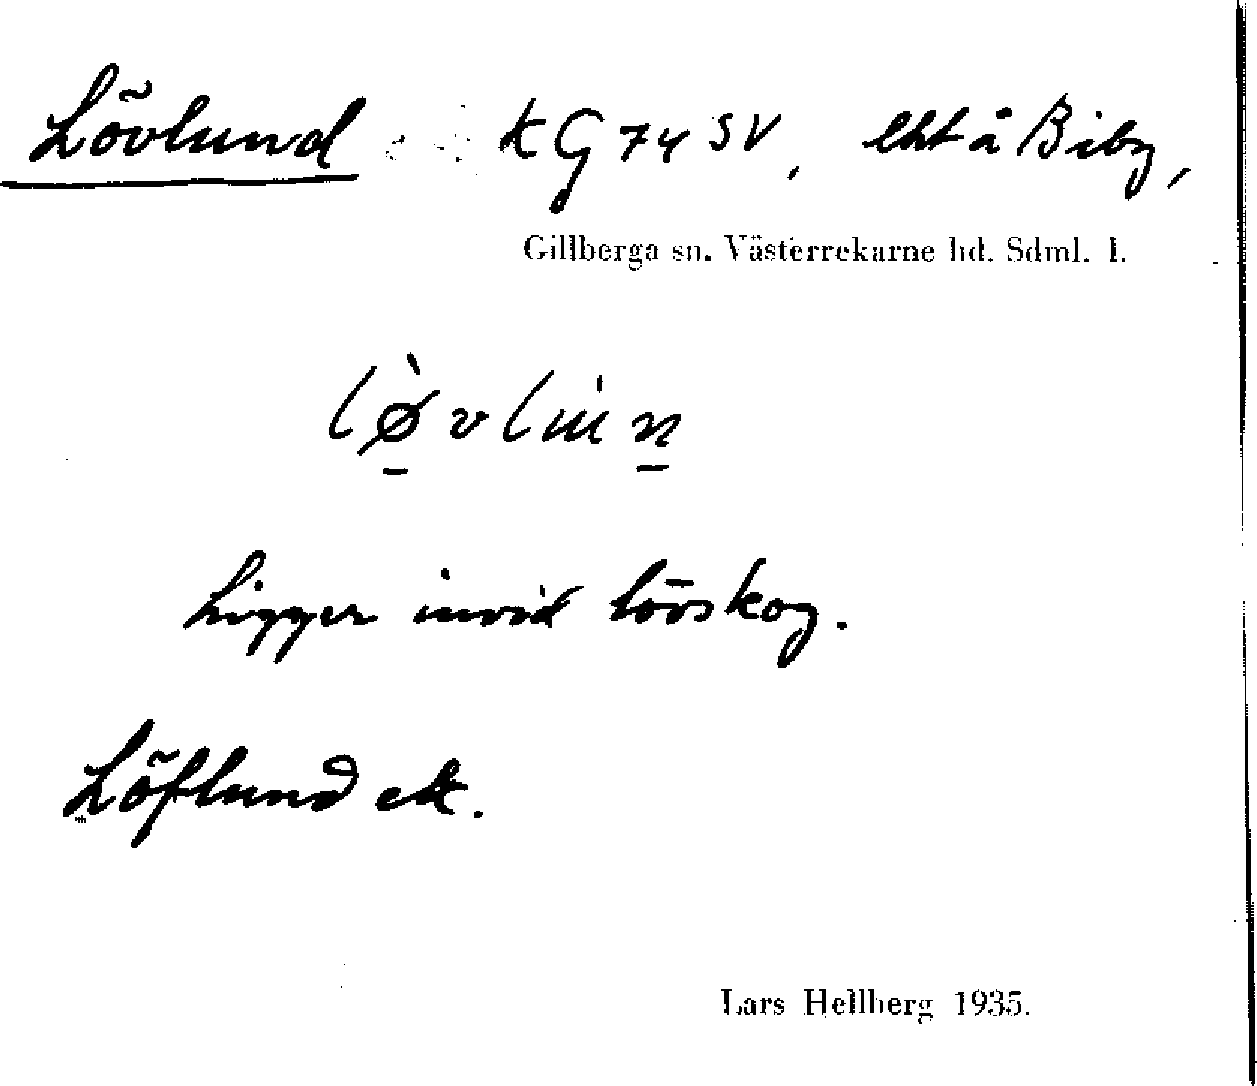 Lövlund kG 74 SV, lht å Biby,
Gillberga sn. Västerrekarne hd. Sdml. l.
lø̀vlún
Ligger invid lövskog.
Löflund ek.
Lars Hellberg 1935.